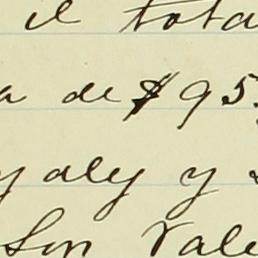 il tota
a de $95.
y aly y
Son Vale